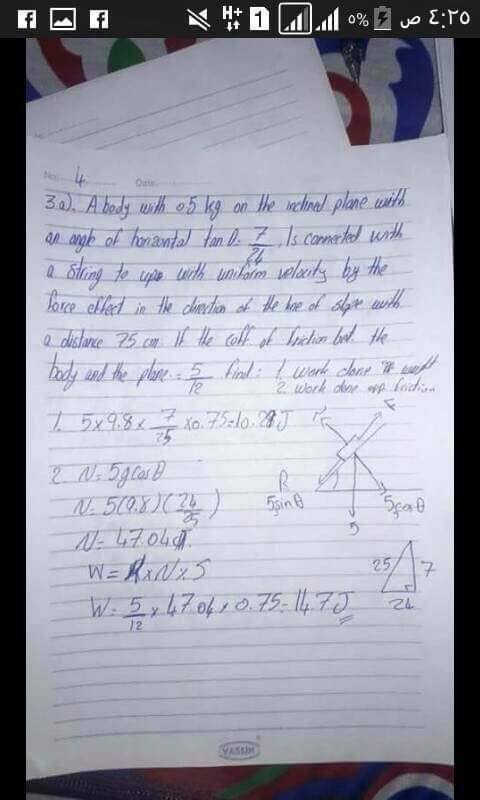 H+ 1 ٥% ص ٤:٢٥
No: 4 Date:
3.a). A body with 05 kg on the inclined plane with
an angle of horizontal tan θ: 7/24. Is connected with
a string to up with uniform velocity by the
force effect in the direction of the line of slope with
a distance 75 cm If the coff of friction bet. the
body and the plane = 5/12 find: 1. work done weight
2. work done opp. friction
1. 5x9.8 x 7/25 x0.75=10.29J
2. N= 5gcosθ
N= 5(9.8)(24/25)
N= 47.04
W= xNx5
W= 5/12 x 47.04 x 0.75= 14.7J
F
R
5sinθ
5cosθ
5
25
7
24
YASSIN